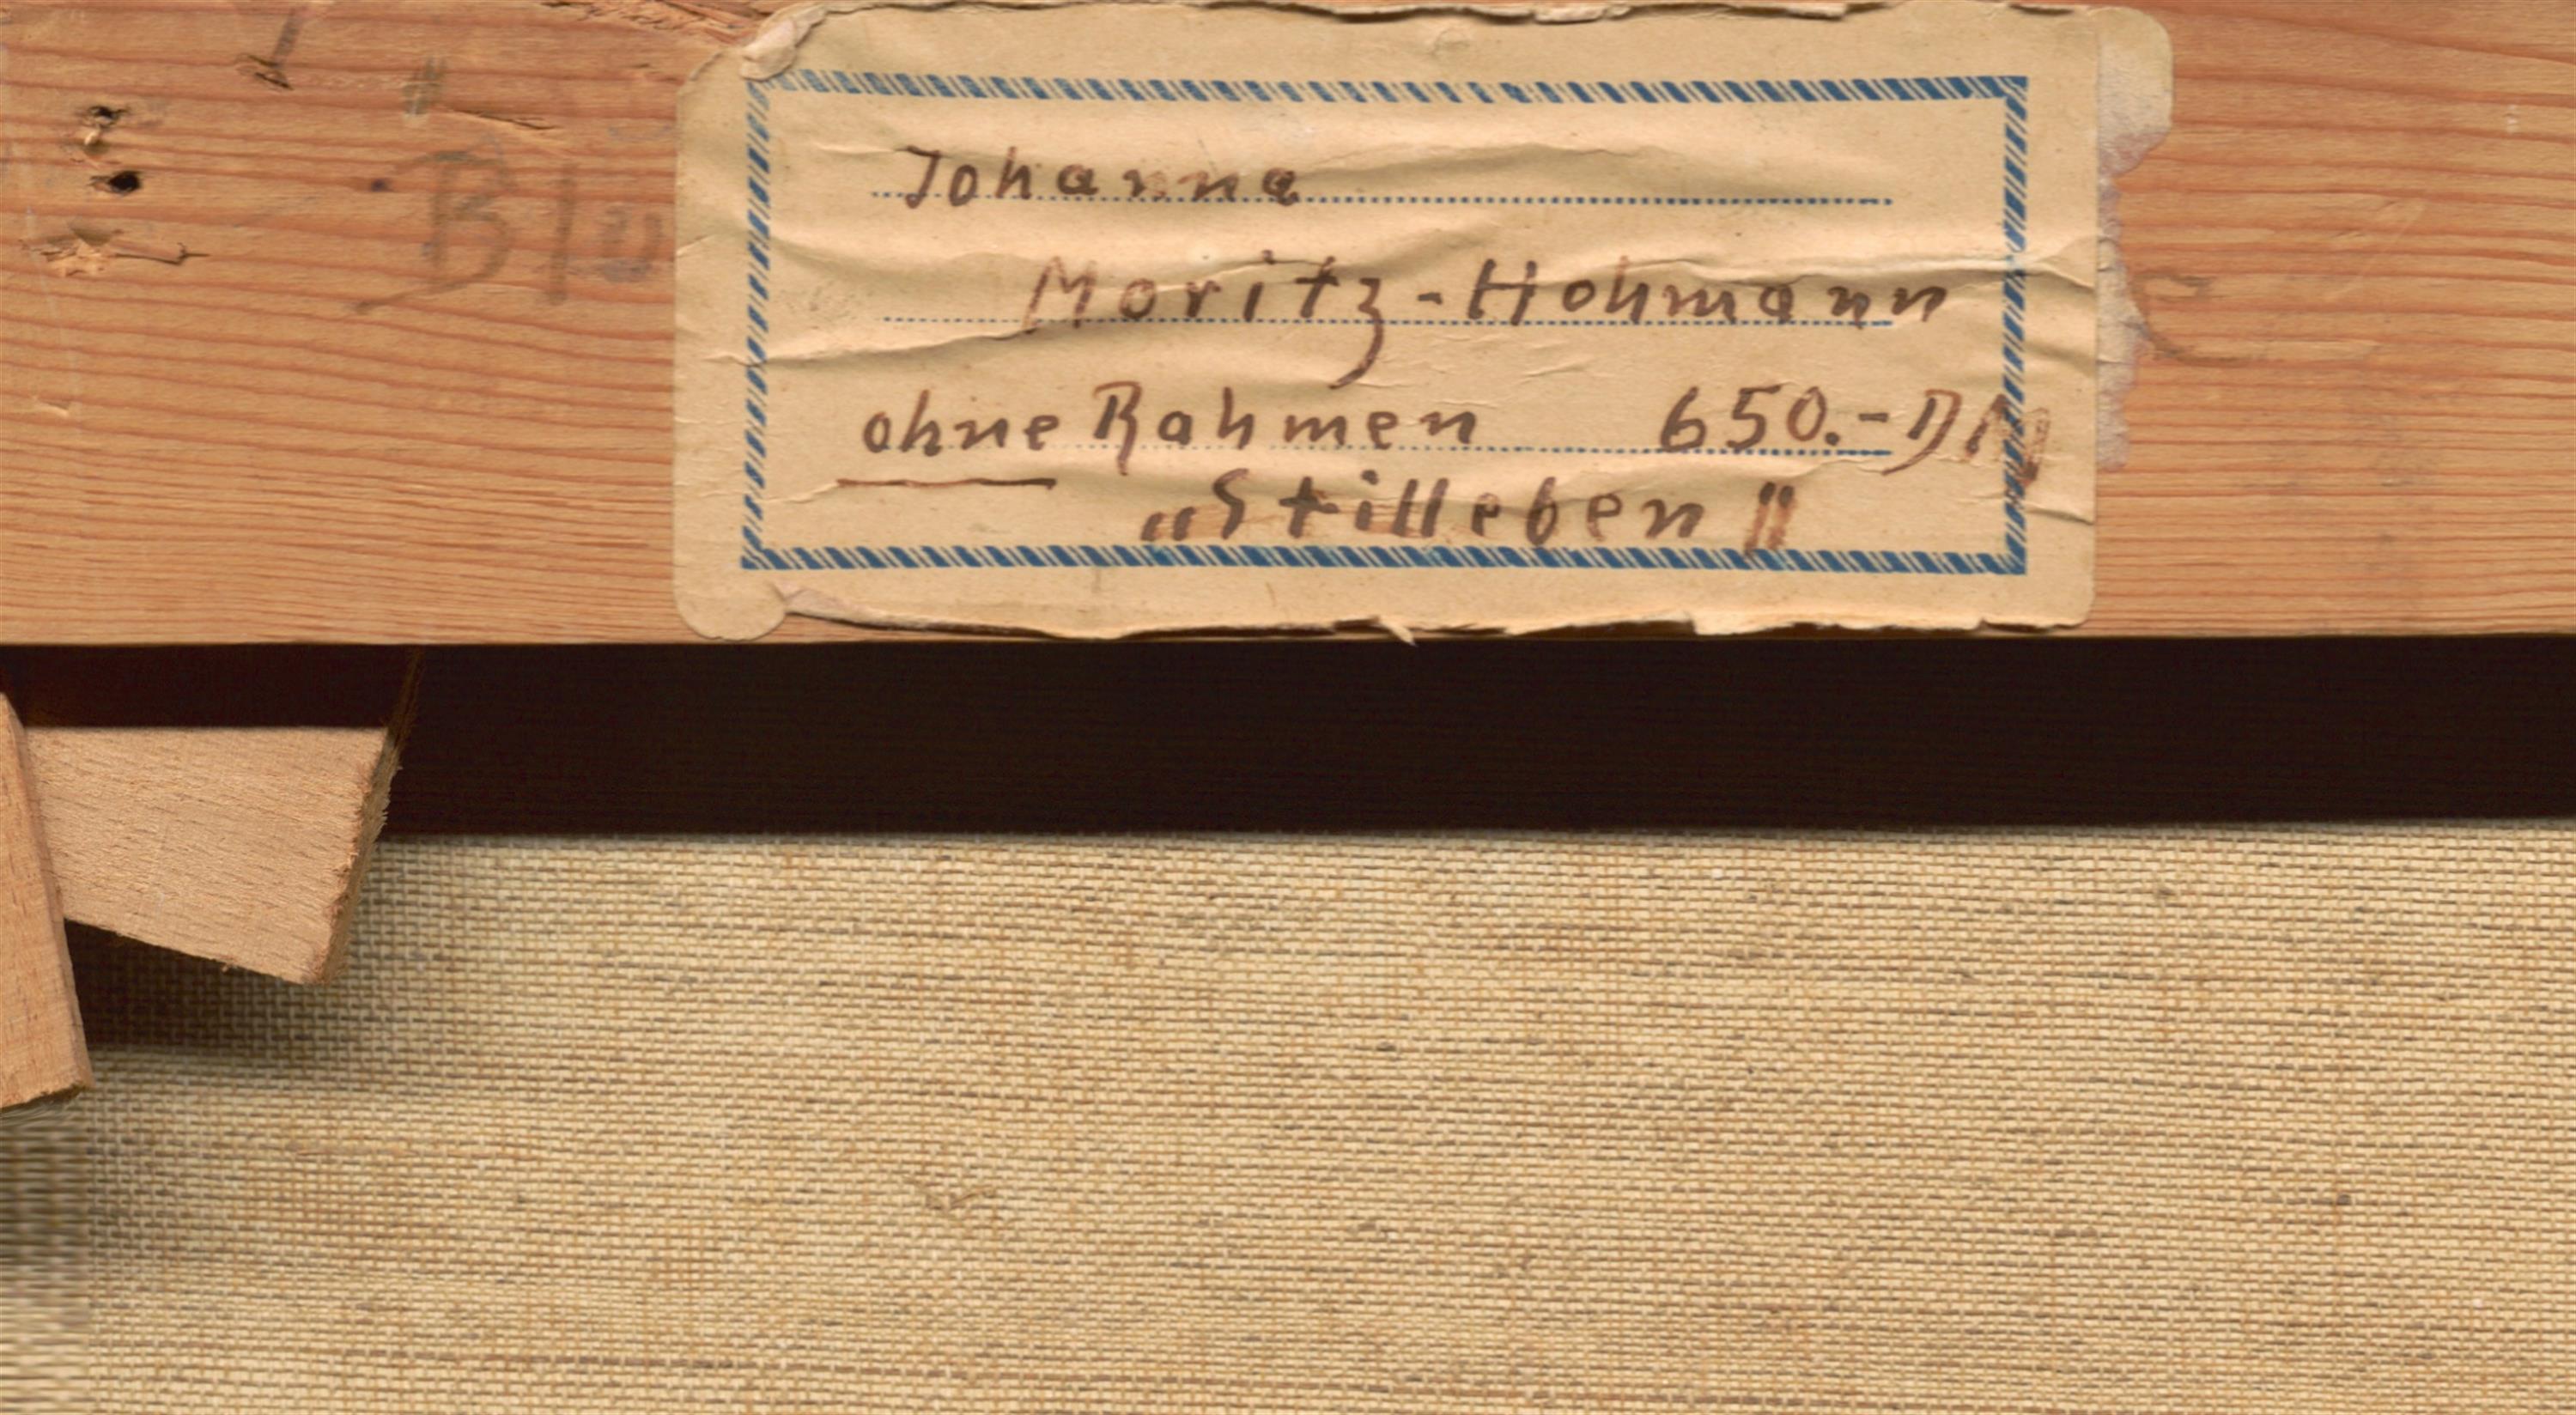 Johanna
Moritz-Hohmann
ohne Rahmen 650.- DM
„Stilleben"